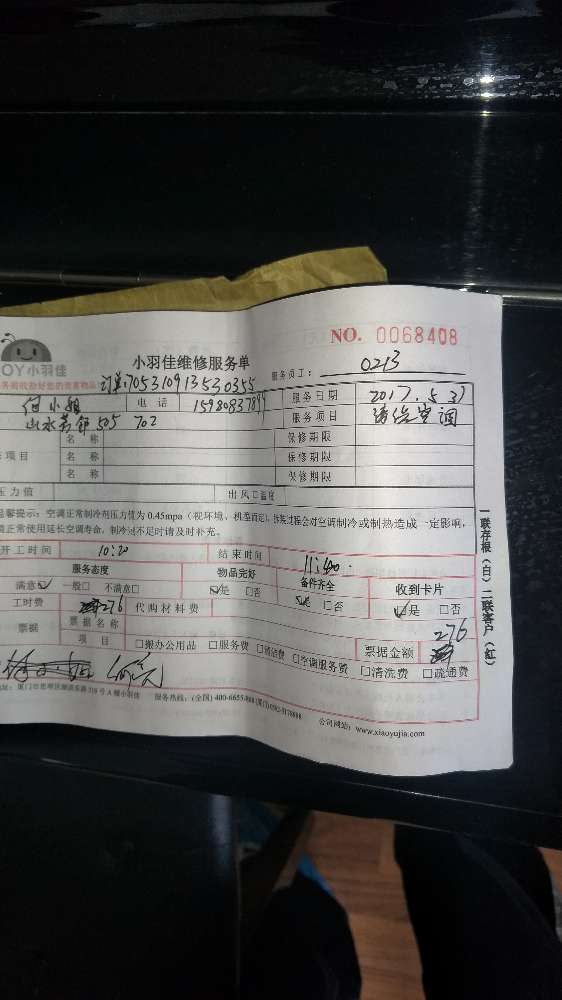 NO. 0068408
JOY小羽佳
小羽佳维修服务单
服务员工： 0213
订单:7053109135530355
何小姐 电话 服务日期 2017.5.31
505 702 服务项目 清洗空调
名 称 保修期限
项目 名 称 保修期限
名 称 保修期限
压力值 出风口温度
温馨提示：空调正常制冷剂压力值为0.45mpa（视环境、机型而定），拆装过程会对空调制冷或制热造成一定影响，
正常使用延长空调寿命，制冷过不足时请及时补充。
开工时间 10:20 结束时间 11:40
服务态度 物品完好 备件齐全 收到卡片
满意☑ 一般□ 不满意□ ☑是 □否 ☑是 □否 ☑是 □否
工时费 276 代购材料费
票据 票据名称 票据金额 276
项 目 □搬办公用品 □服务费 □清洁费 □空调服务费 □清洗费 □疏通费
公司网站：www.xiaoyujia.com
一联存根（白）二联客户（红）